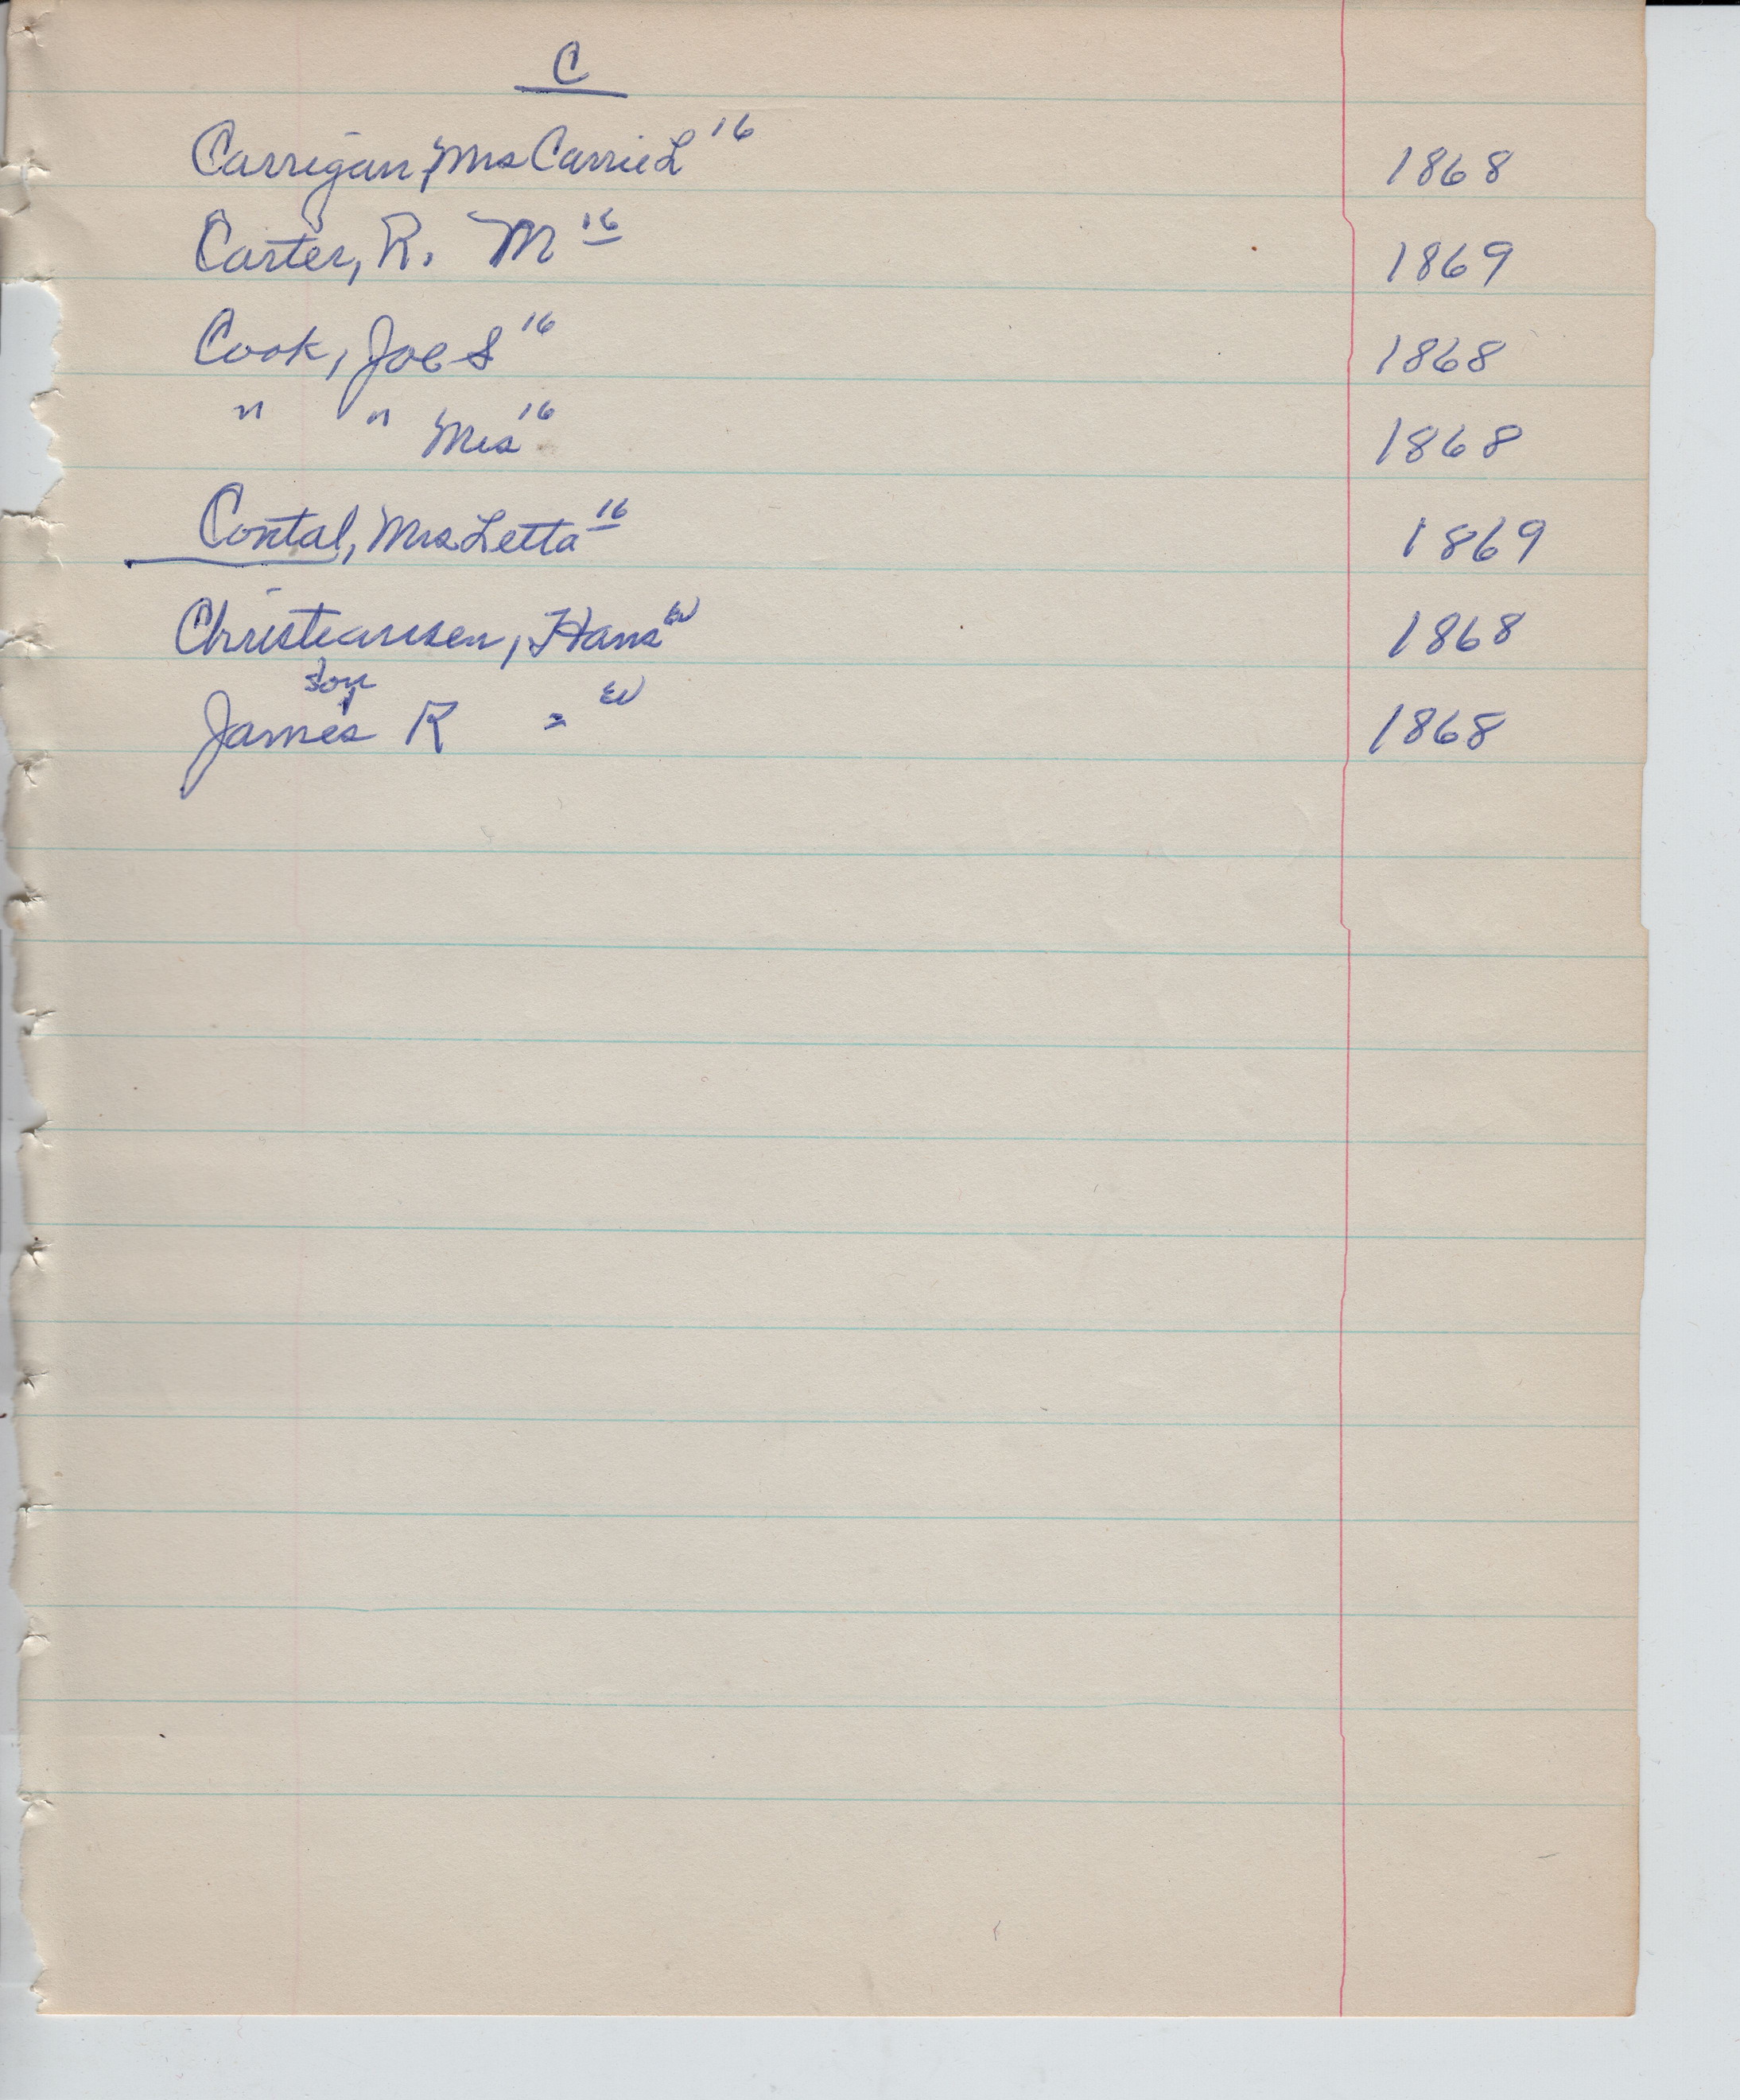 C
Carrigan, Mrs Carrie L 16 1868
Carter, R. M 16 1869
Cook, Joe S 16 1868
" " Mrs 16 1868
Contal, Mrs Letta 16 1869
Christiansen, Hans W 1868
son
James R = W 1868